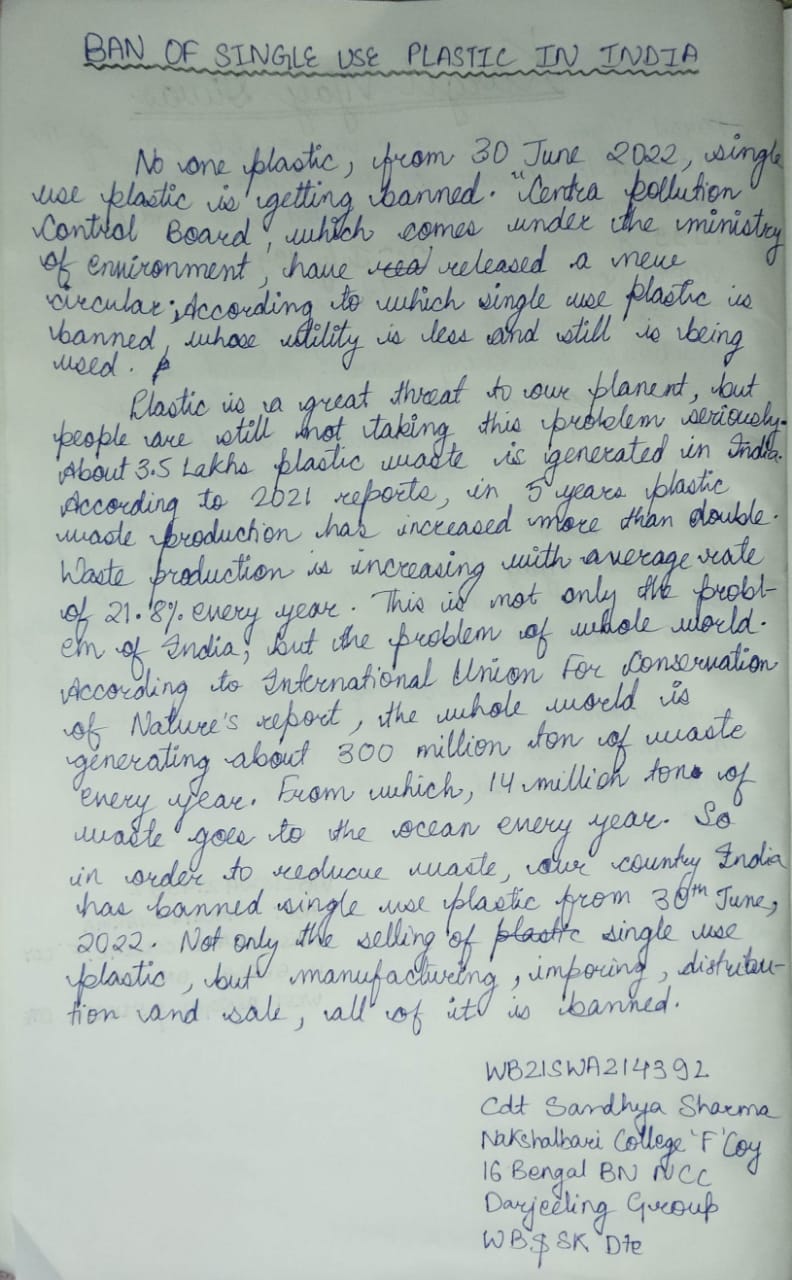 BAN OF SINGLE USE PLASTIC IN INDIA
No one plastic, from 30 June 2022, single
use plastic is getting banned. "Centra pollution
Control Board", which comes under the ministry
of environment, have rea released a new
circular; According to which single use plastic is
banned, whose utility is less and still is being
used. p
Plastic is a great threat to our planent, but
people are still not taking this problem seriously.
About 3.5 Lakhs plastic waste is generated in India.
According to 2021 reports, in 5 years plastic
waste production has increased more than double.
Waste production is increasing with average rate
of 21.8% every year. This is not only the probl-
em of India, but the problem of whole world.
According to International Union For Conservation
of Nature's report, the whole world is
generating about 300 million ton of waste
every year. From which, 14 million tons of
waste goes to the ocean every year. So
in order to reducue waste, our country India
has banned single use plastic from 30th June,
2022. Not only the selling of plastic single use
plastic, but manufacturing, imporing, distribu-
tion and sale, all of it is banned.
WB21SWA214392
Cdt Sandhya Sharma
Nakshalbari College 'F' Coy
16 Bengal BN NCC
Darjeeling Group
WB$ SK Dte